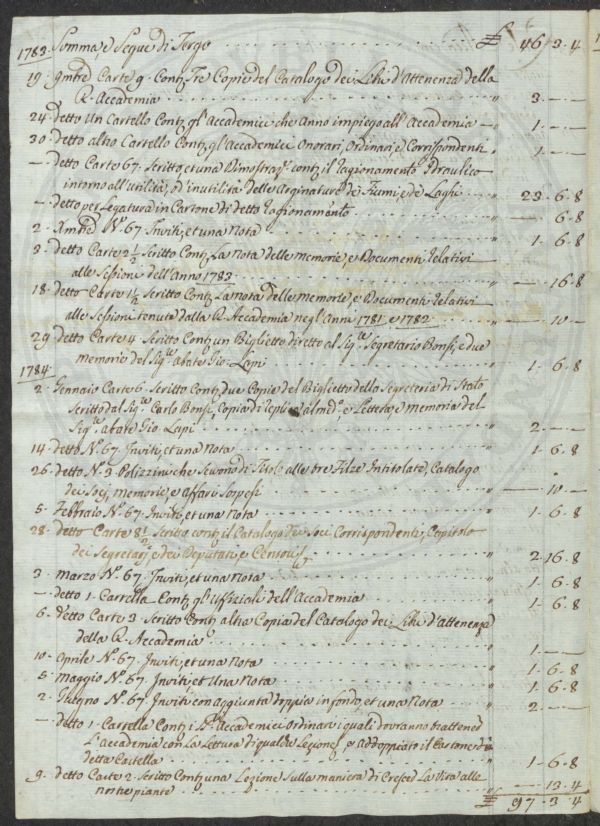 1783. Somma e Segue di Tergo ₤ 46. 3. 4
19. 9mbre Carte 9. Conti. Tre Copie del Catalogo dei Libri d'Attenenza della
R. Accademia 3. — —
24. detto Un Cartello Conti. gl'Accademici che anno impiego all'Accademia 1. — —
30. detto altro Cartello Conti. gl'Accademici Onorari, Ordinari, e Corrispondenti 1. — —
— detto Carte 67. Scritto, et una Dimostraz. conti. il Ragionamento Idraulico
intorno all'utilità, od inutilità delle Arginature de Fiumi, e de Laghi 23. 6. 8
— detto per Legatura in Cartone di detto Ragionamento — 6. 8
2. Xmbre N.° 67. Inviti, et una Nota 1. 6. 8
3. detto Carte 2½ Scritto Conti. La Nota delle memorie, e Documenti Relativi
alle Sessioni dell'Anno 1783 — 16. 8
18. detto Carte 1½ Scritto Conti. La nota delle memorie, e Documenti Relativi
alle Sessioni tenute dalla R. Accademia negl'Anni 1781. e 1782 — 10. —
29. detto Carte 4. Scritto Conti. un Biglietto diretto al Sig.re Segretario Bonsi, e due
memorie del Sig.re abate Gio. Lapi 1. 6. 8
1784.
2. Gennaio Carte 6. Scritto Conti. due Copie del Biglietto della Segreteria di Stato
Scritto dal Sig.re Carlo Bonsi, Copia di Replica al med.° e Lettera, e memoria del
Sig.re abate Gio. Lapi 2. — —
14. detto N.° 67. Inviti, et una Nota 1. 6. 8
26. detto N. 3. Polizzini che Servono di Titolo alle tre Filze Intitolate, Catalogo
dei Soci, memorie, e affari Sospesi — 10. —
5. Febbraio N.° 67. Inviti, et una Nota 1. 6. 8
28. detto Carte 8½ Scritto conti. il Catalogo de Soci Corrispondenti, Capitolo
dei Segretari, e dei Deputati, e Censori 2. 16. 8
3. Marzo N.° 67. Inviti, et una Nota 1. 6. 8
— detto 1. Cartella Conti. gl'Uffizieli dell'Accademia 1. 6. 8
6. detto Carte 3. Scritto Conti. altra Copia del Catalogo dei Libri d'attenenza
della R. Accademia 1. — —
10. Aprile N.° 67. Inviti, et una Nota 1. 6. 8
5. Maggio N.° 67. Inviti, et Una Nota 1. 6. 8
2. Giugno N.° 67. Inviti con aggiunta doppia in fondo, et una Nota 2. — —
— detto 1. Cartella Conti. i Accademici Ordinari i quali dovranno trattenere
L'accademia con La Lettura di qualche Lezione, p. addoppiato il Cartone di
detta Cartella 1. 6. 8
9. detto Carte 2. Scritto Conti. una Lezione Sulla maniera di Crescer La Vita alle
nostre piante — 13. 4
₤ 97. 3. 4